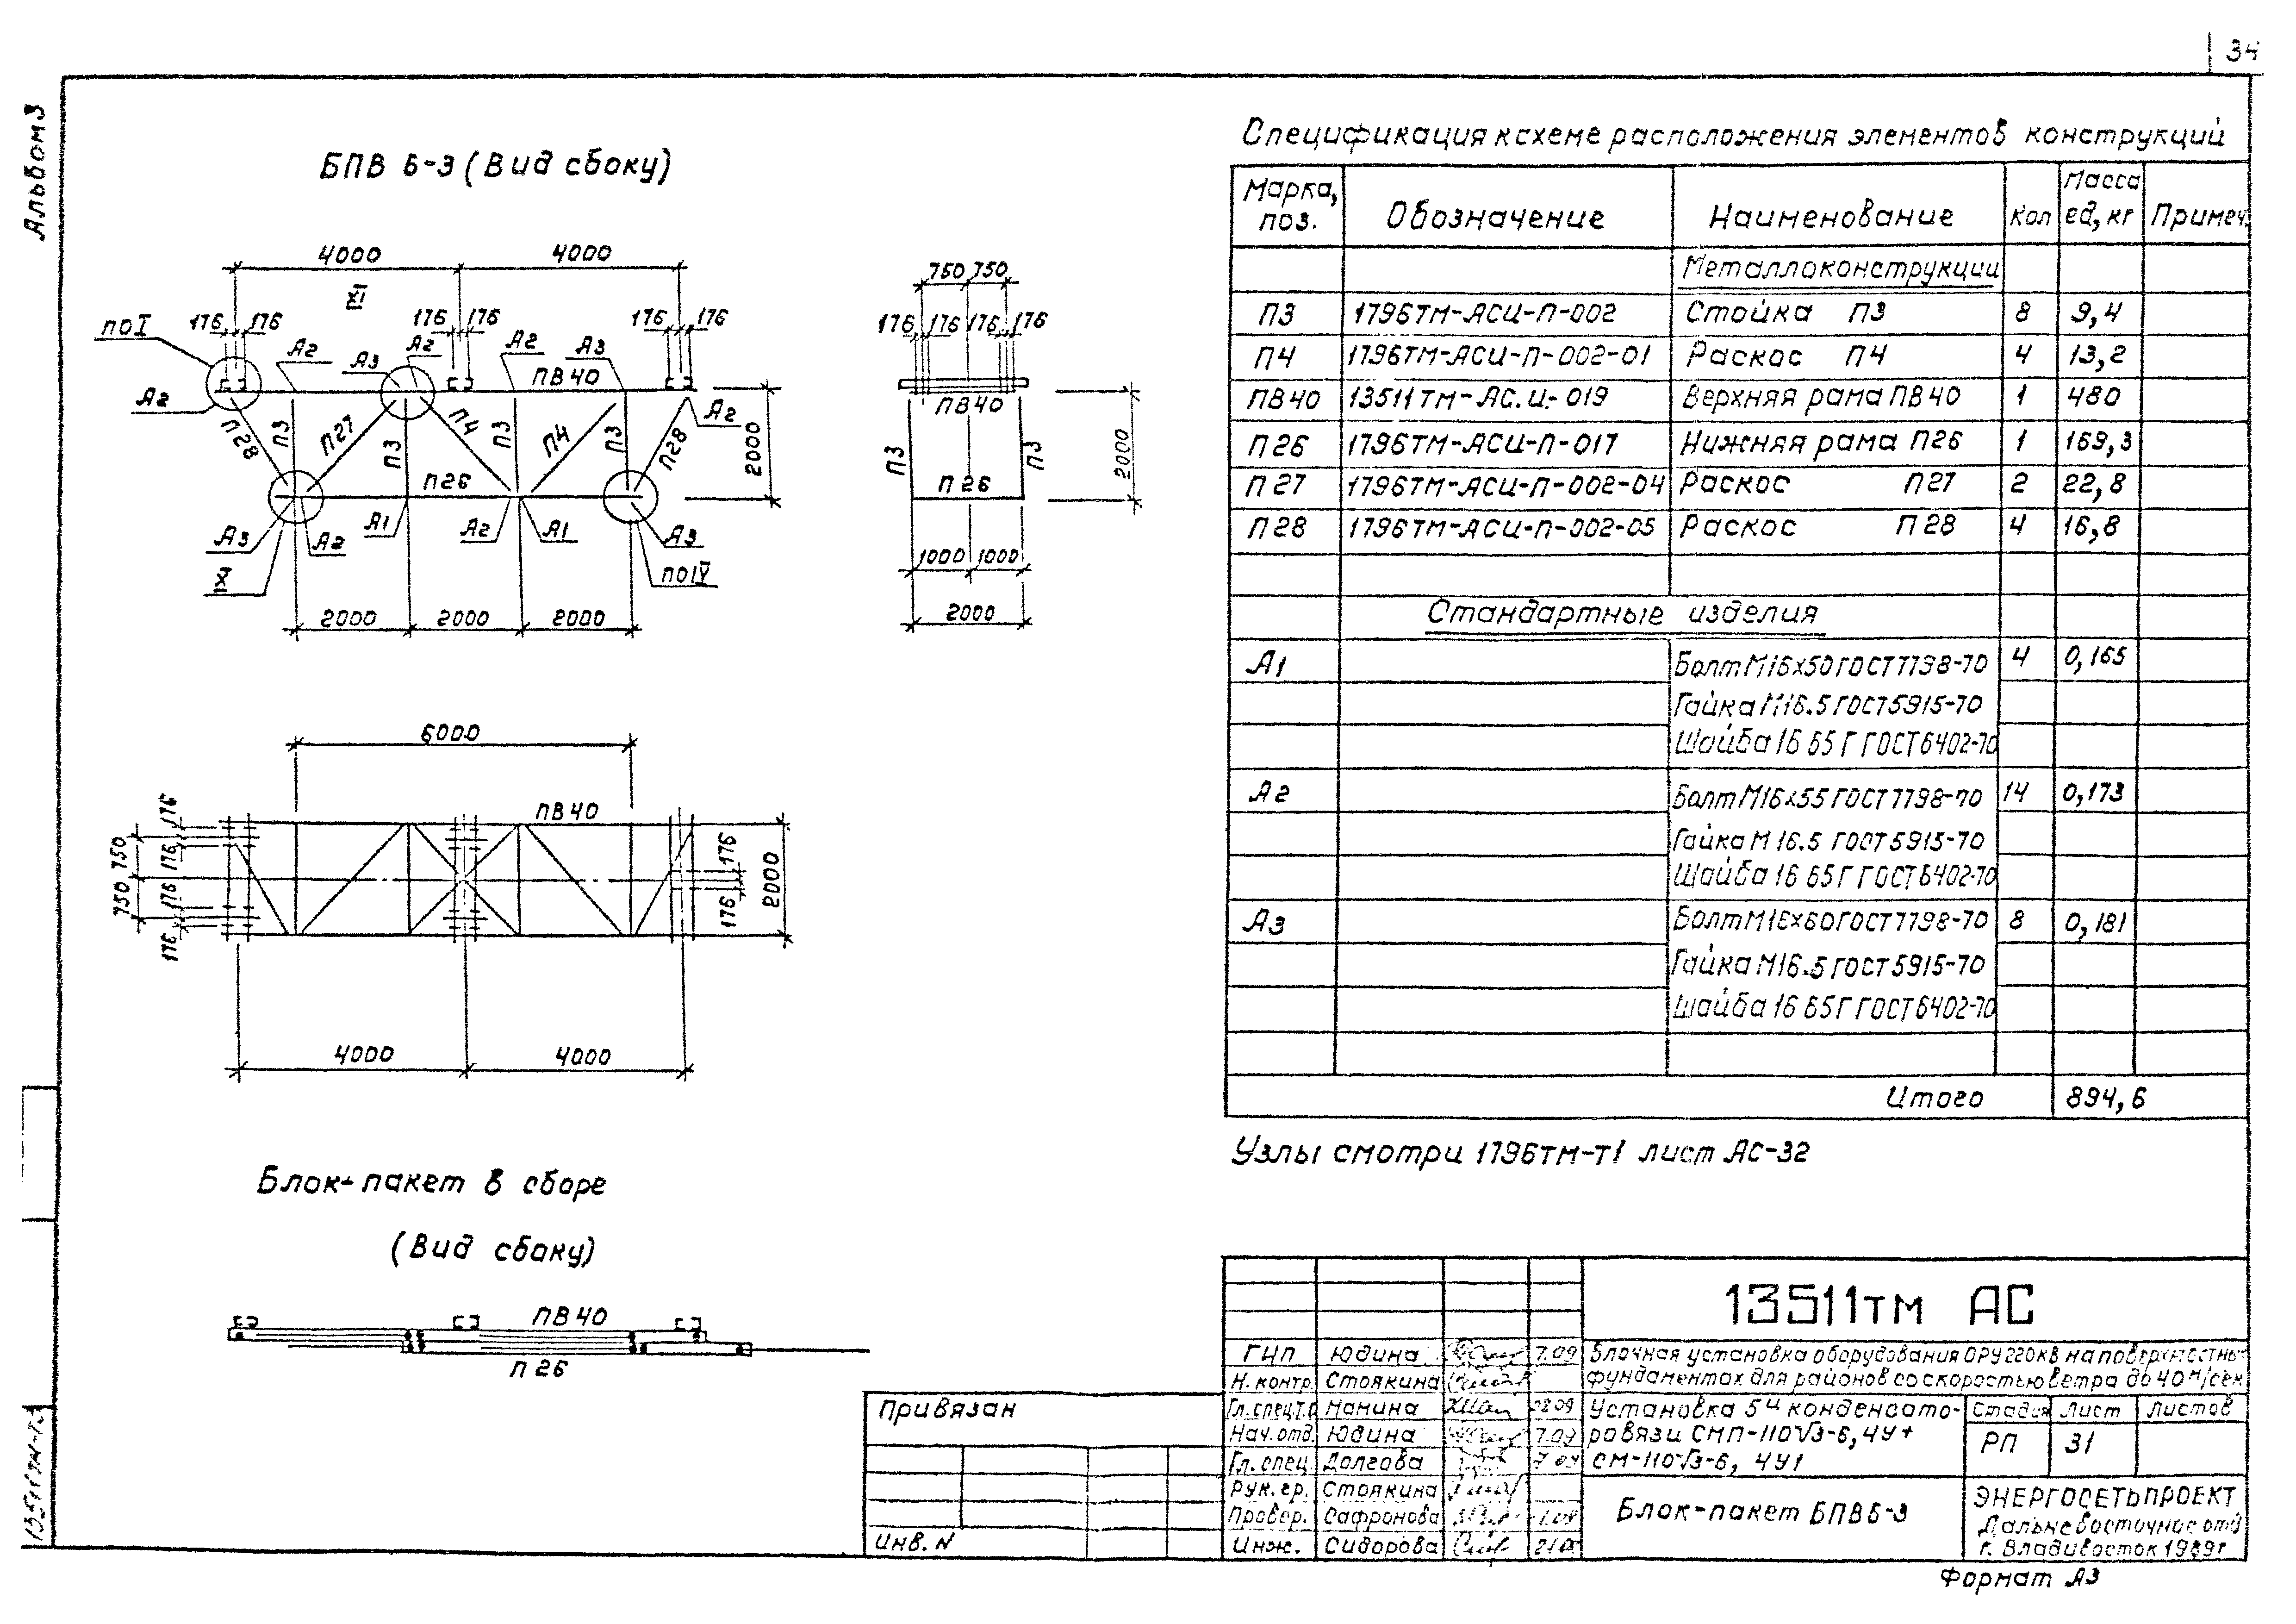 34
Альбом 3
БПВ 6-3 (Вид сбоку)
4000 4000
XI
176 176 176 176 176 176
по I
А2 А3 А2 А2 А3
ПВ 40
А2 А2
П28 П3 П27 П3 П4 П3 П4 П3 П28
2000
П26
А3 А2 А1 А2 А1 А3
X
по IV
2000 2000 2000
750 750
176 176 176 176
ПВ 40
П3 П3
2000
П 26
1000 1000
2000
6000
ПВ 40
176
750
176
176
750
176
176
176
2000
4000 4000
Блок-пакет в сборе
(Вид сбоку)
ПВ 40
П 26
Спецификация к схеме расположения элементов конструкций
Марка, поз. Обозначение Наименование Кол Масса ед, кг Примеч.
Металлоконструкции
П3 1796ТМ-АСИ-П-002 Стойка П3 8 9,4
П4 1796ТМ-АСИ-П-002-01 Раскос П4 4 13,2
ПВ40 13511ТМ-АС.И.-019 Верхняя рама ПВ40 1 480
П26 1796ТМ-АСИ-П-017 Нижняя рама П26 1 169,3
П27 1796ТМ-АСИ-П-002-04 Раскос П27 2 22,8
П28 1796ТМ-АСИ-П-002-05 Раскос П28 4 16,8
Стандартные изделия
А1 Болт М16х50 ГОСТ 7798-70 4 0,165
Гайка М16.5 ГОСТ 5915-70
Шайба 16 65Г ГОСТ 6402-70
А2 Болт М16х55 ГОСТ 7798-70 14 0,173
Гайка М16.5 ГОСТ 5915-70
Шайба 16 65Г ГОСТ 6402-70
А3 Болт М16х60 ГОСТ 7798-70 8 0,181
Гайка М16.5 ГОСТ 5915-70
Шайба 16 65Г ГОСТ 6402-70
Итого 894,6
Узлы смотри 1796тм-т1 лист АС-32
13511тм АС
Блочная установка оборудования ОРУ 220кВ на поверхностных
фундаментах для районов со скоростью ветра до 40 м/сек
Установка 5и конденсато-
ров связи СМП-110√3-6,4У+
СМ-110√3-6, 4У1
Стадия Лист Листов
РП 31
Блок-пакет БПВ6-3
ЭНЕРГОСЕТЬПРОЕКТ
Дальневосточное отд
г. Владивосток 1989г
ГИП Юдина 7.09
Н. контр. Стоякина
Гл. спец.Т.О Манина 08.09
Нач. отд. Юдина 7.09
Гл. спец Долгова 7.09
Рук. гр. Стоякина
Провер. Сафронова
Инж. Сидорова
Привязан
Инв. N
13511тм-т3
Формат А3